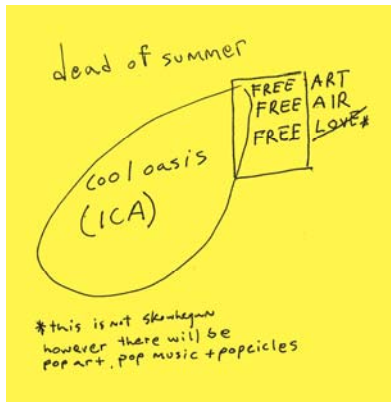 dead of summer
FREE ART
FREE AIR
FREE LOVE*
cool oasis
(ICA)
*this is not skowhegan
however there will be
pop art, pop music + popcicles